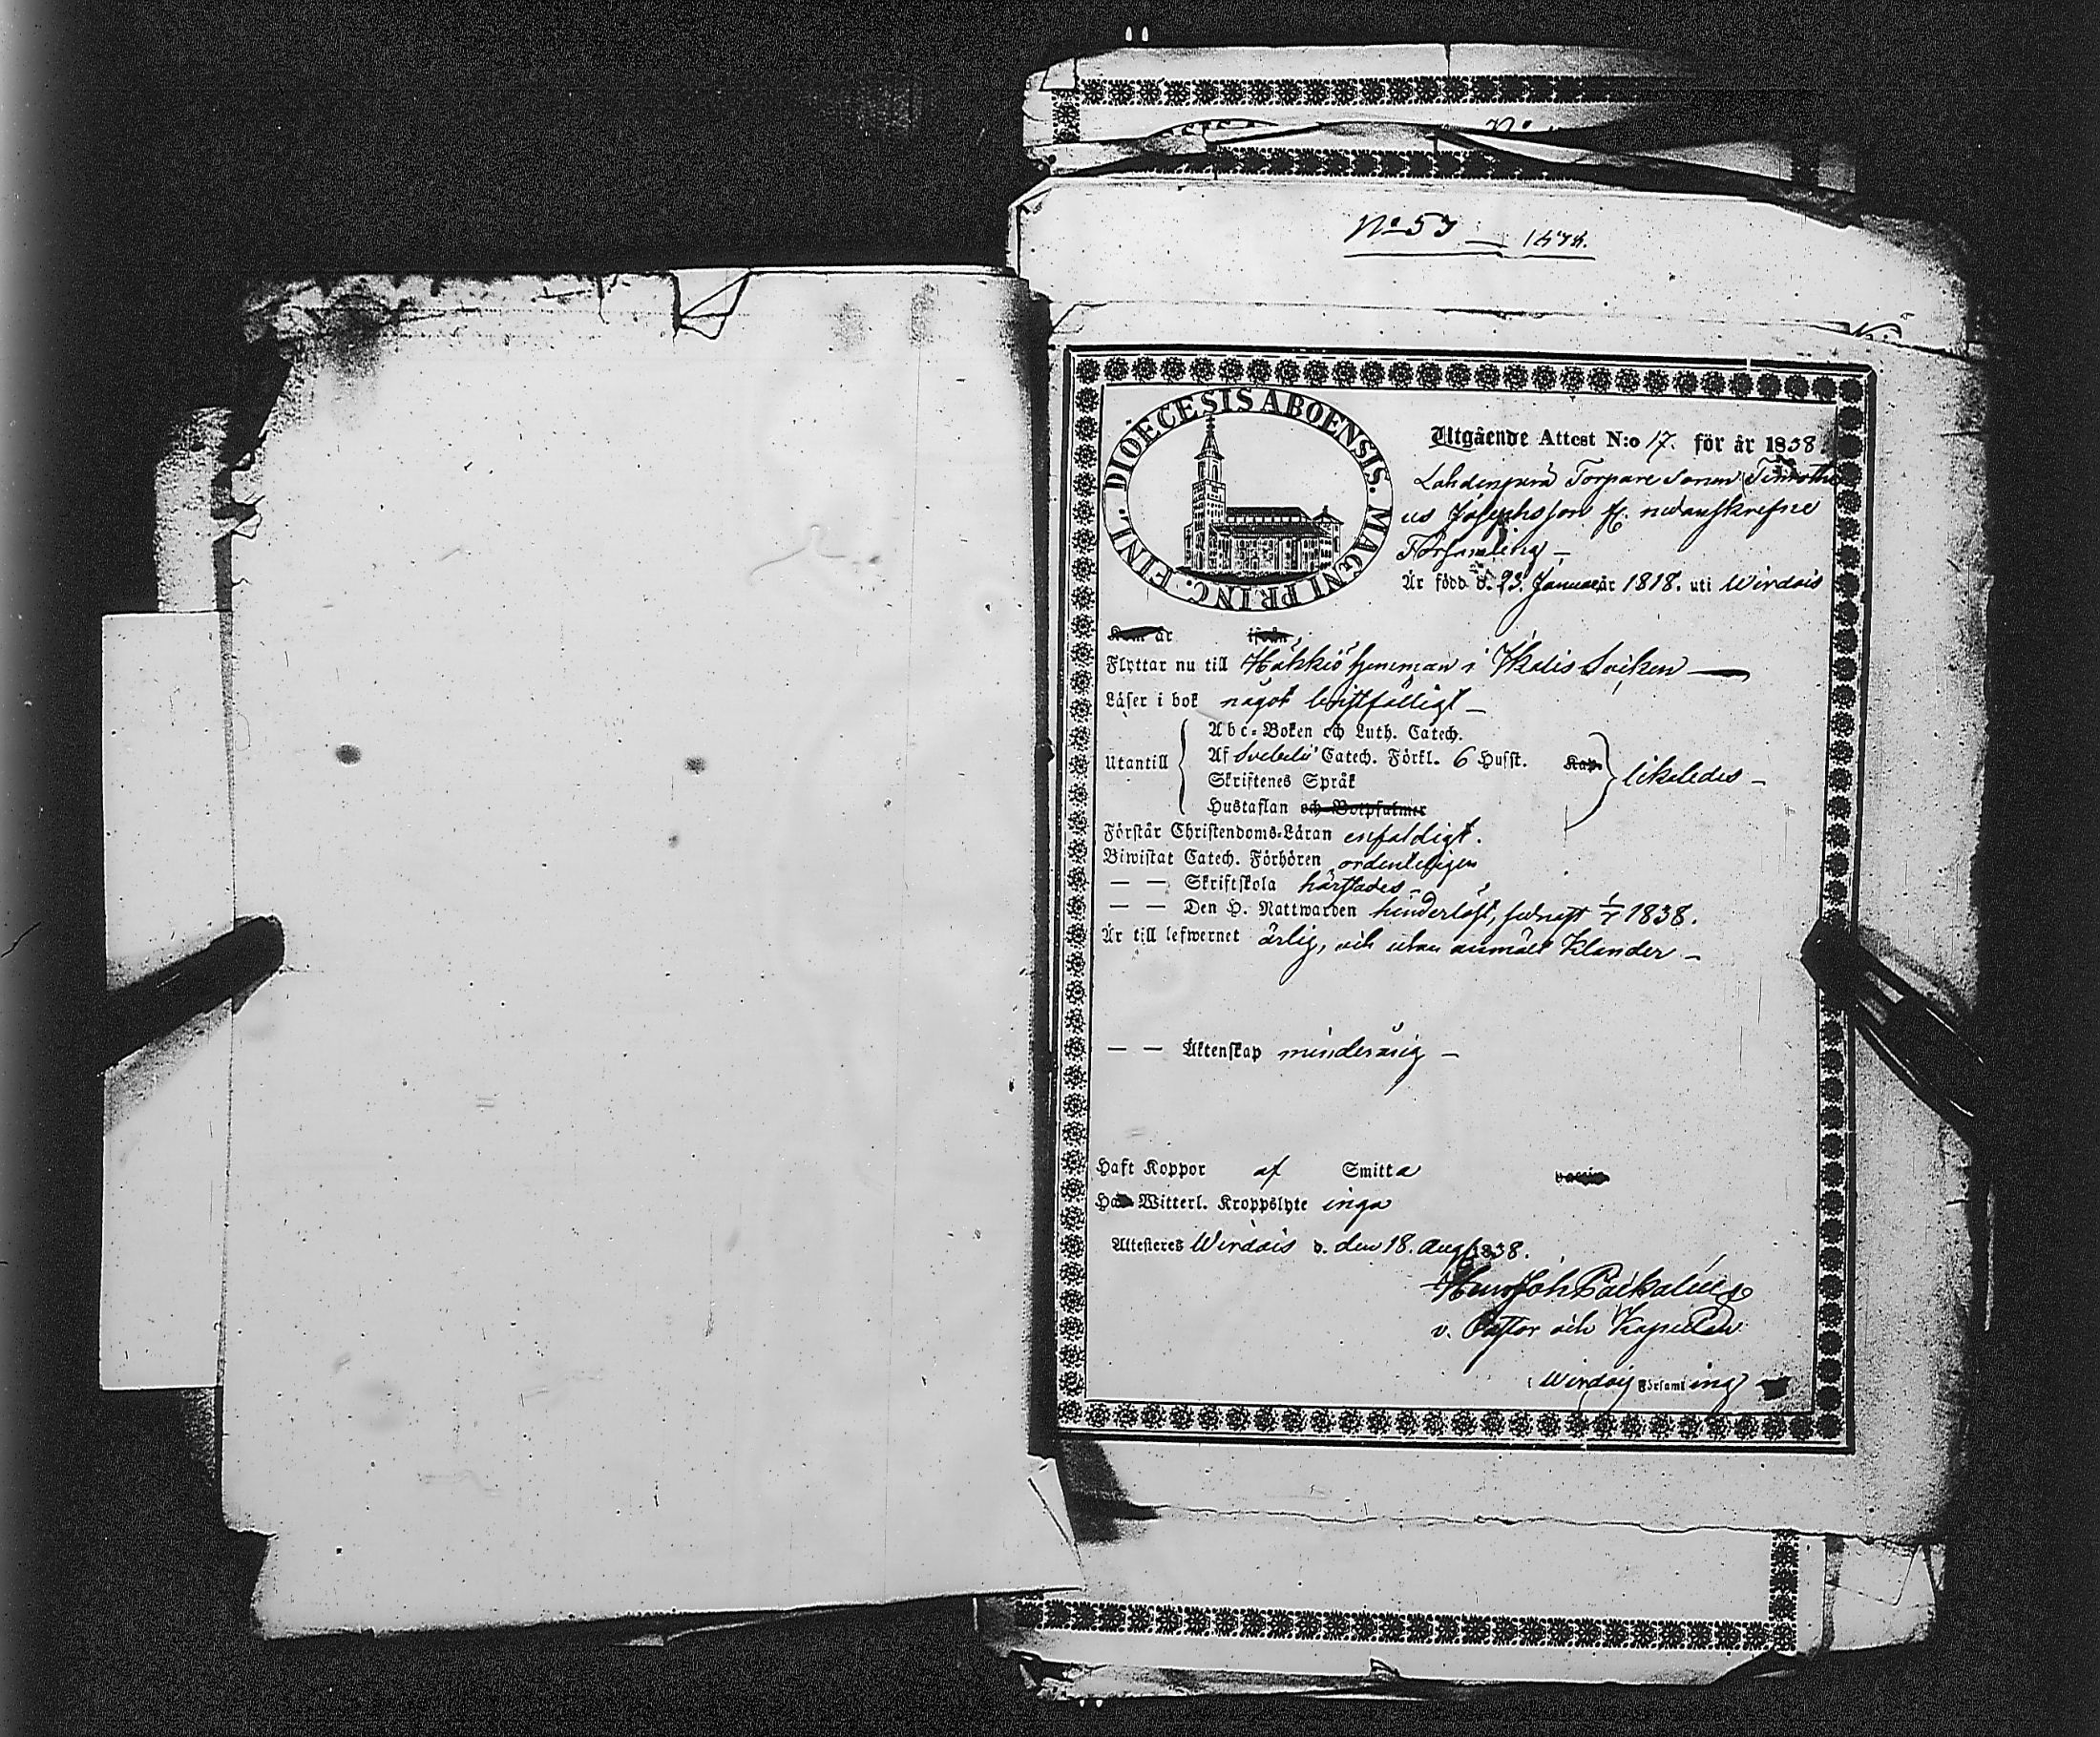 No 57 1838.
DIOECESIS ABOENSIS. MAGNI PRINC. FINL.
Utgående Attest N:o 17. för år 1838.
Lahdenperä Torpare Sonen Timothe
us Josephsson fr. nedanskrefne
Församling —
Är född d. 23. Januari år 1818. uti Wirdois
Kom år ifrån
Flyttar nu till Häkkiö hemman i Ikalis Socken —
Läser i bok något bristfälligt —
Utantill
Abc-Boken och Luth. Catech.
Af Svebelii Catech. Förkl. 6 Hufst. Kap.
Skriftenes Språk
Hustaflan och Botpsalmer
likaledes —
Förstår Christendoms-Läran enfaldigt.
Biwistat Catech. Förhören ordenteligen
— — Skriftskola härstädes —
— — Den H. Nattwarden hinderlöst, sednast 1/7 1838.
Är till lefwernet ärlig, och utan anmält klander —
— — Äktenskap minderårig —
Haft Koppor af Smitta vaccin
Har Witterl. Kroppslyte inga
Attesteras Wirdois d. den 18. Aug. 1838.
Henr Joh
v. Pastor och Kapellan
i Wirdois Församling